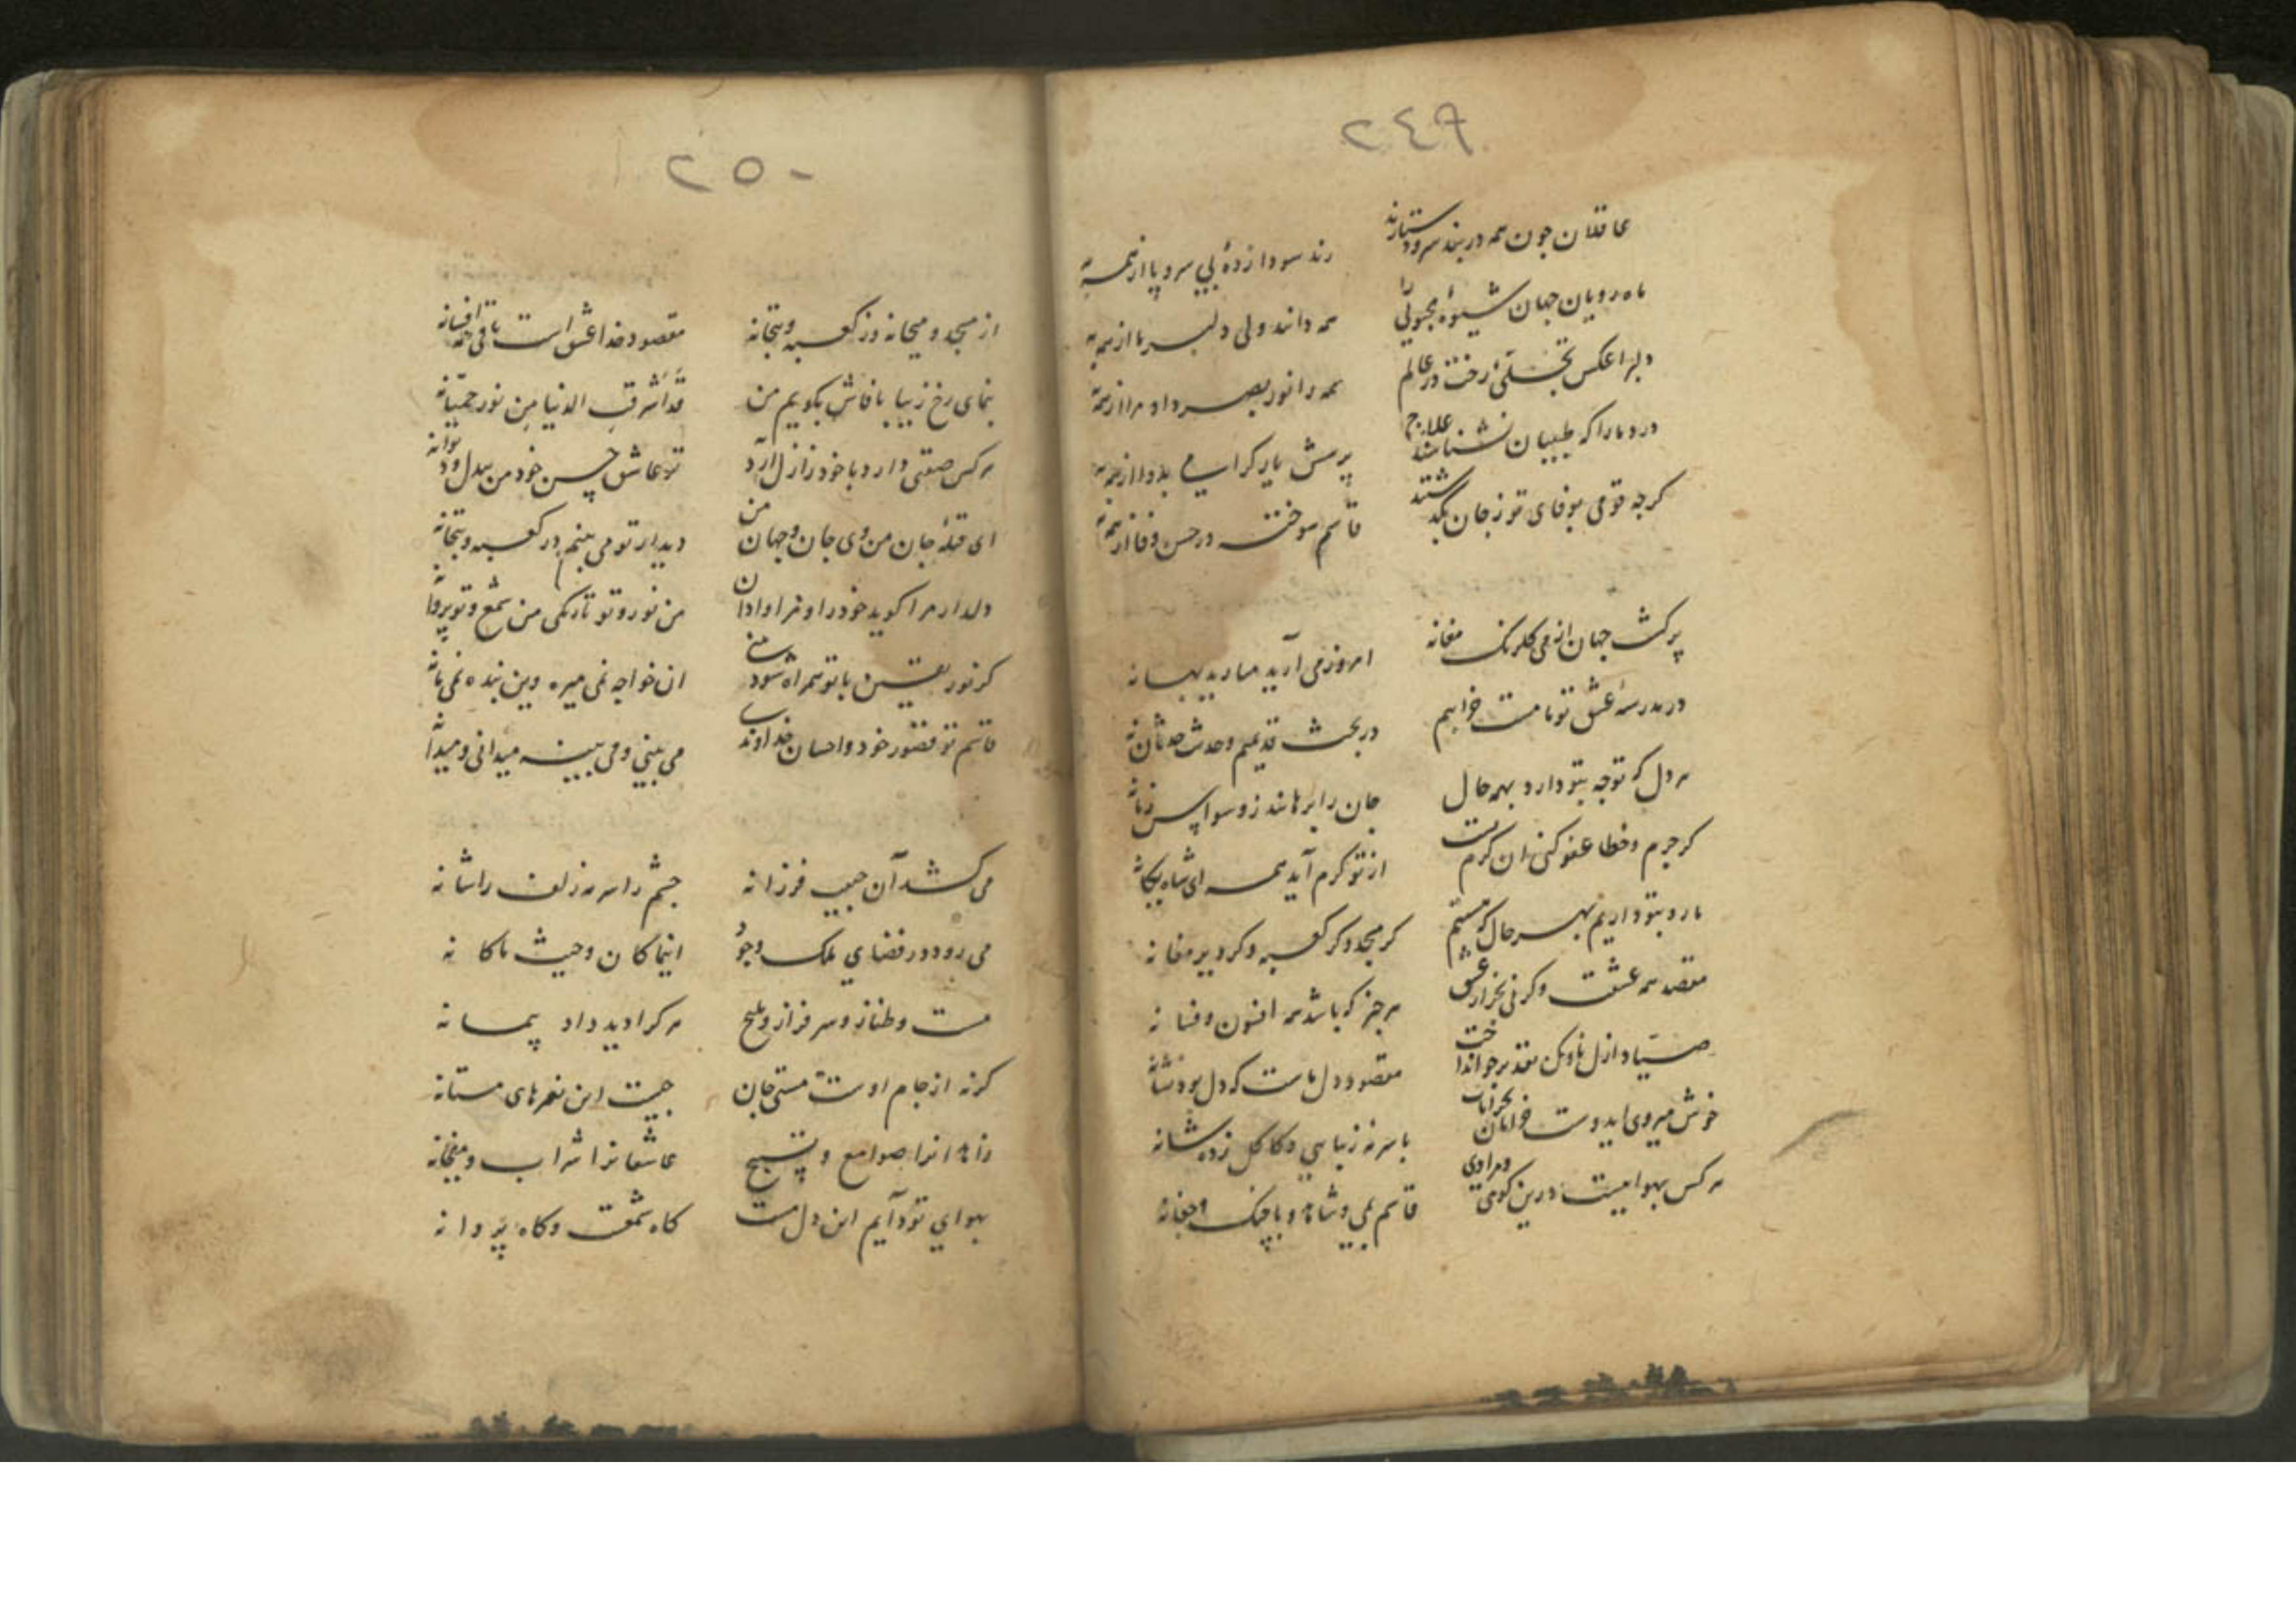 ۲۴۹
عاقلان جون همه در بند سر و دستارند
رند سودا زدهٔ بی سر و پا از همه به
ماه رویان جهان شیوهٔ محبوبی را
همه دانند ولی دلبر ما از همه به
دلبرا عکس تجلی رخت در عالم
همه را نور بصر داد مرا از همه به
درد ما را که طبیبان نشناسند علاج
پرسش یار کرامی بدوا از همه به
کرجه قومی بوفای تو ز جان بگذشتند
قاسم سوخته در حسن وفا از همه به
پر کشت جهان از می کلرنک مغانه
امروز می آرید میارید بهانه
در مدرسهٔ عشق تو تا مست خرابیم
در بحث قدیمیم و حدث حدثان نه
هر دل که توجه بتو دارد بهمه حال
جان را برهانند ز وسواس زمانه
کر جرم و خطا عفو کنی ان کرم تست
از تو کرم آید همه ای شاه یکانه
ما رو بتو داریم بهر حال که هستیم
کر مسجد و کر کعبه و کر دیر مغانه
مقصد همه عشقت و کرنی بخز از عشق
هر جیز که باشد همه افسون و فسانه
صیاد ازل ناوک تقدیر جو انداخت
مقصود دل ماست که دل بود نشانه
خوش میروی ایدوست خرامان بخرابات
با سر نه زیبایی و کاکل زده شانه
هر کس بهوایست درین کوی و مرادی
قاسم بمی و شاهد و با چنک و چغانه
۲۵۰
از مسجد و میخانه وز کعبه و بتخانه
مقصود خدا عشق است باقی همه افسانه
بنمای رخ زیبا تا فاش بکویم من
قد اشرقت الدنیا من نور حمیّانه
هر کس صفتی دارد با خود ز ازل آرد
تو عاشق حسن خود من بیدل و دیوانه
ای قبلهٔ جان من وی جان و جهان من
دیدار تو می بینم در کعبه و بتخانه
دلدار مرا کوید خود را و مرا وادان
من نور و تو تاریکی من شمع و تو پروانه
کر نور یقین با تو همراه شود
ان خواجه نمی میرد وین بنده نمی مانه
قاسم تو قصور خود و احسان خداوندی
می بینی و می بینه میدانی و میدانه
می کشد آن حبیب فرزانه
جشم را سرمه زلف را شانه
می رود در فضای ملک وجود
اینما کان و حیث ما کانه
مست و طناز و سرفراز و ملیح
هر کرا دید داد پیمانه
کرنه از جام اوست مستی جان
جیست این نعرهای مستانه
زاهدانرا صوامع و تسبیح
عاشقانرا شراب و میخانه
بهوای تو دایم این دل مست
کاه شمعست و کاه پروانه